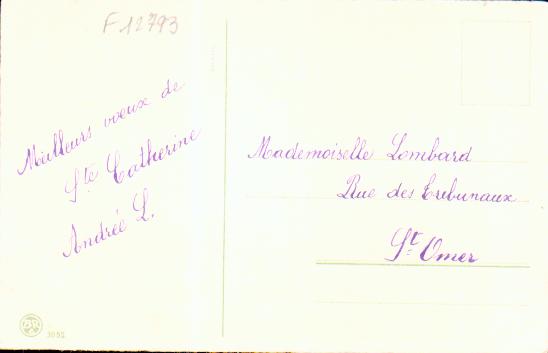 F12793
Meilleurs voeux de
Ste Catherine
Andrée L.
Mademoiselle Lombard
Rue des Tribunaux
St Omer